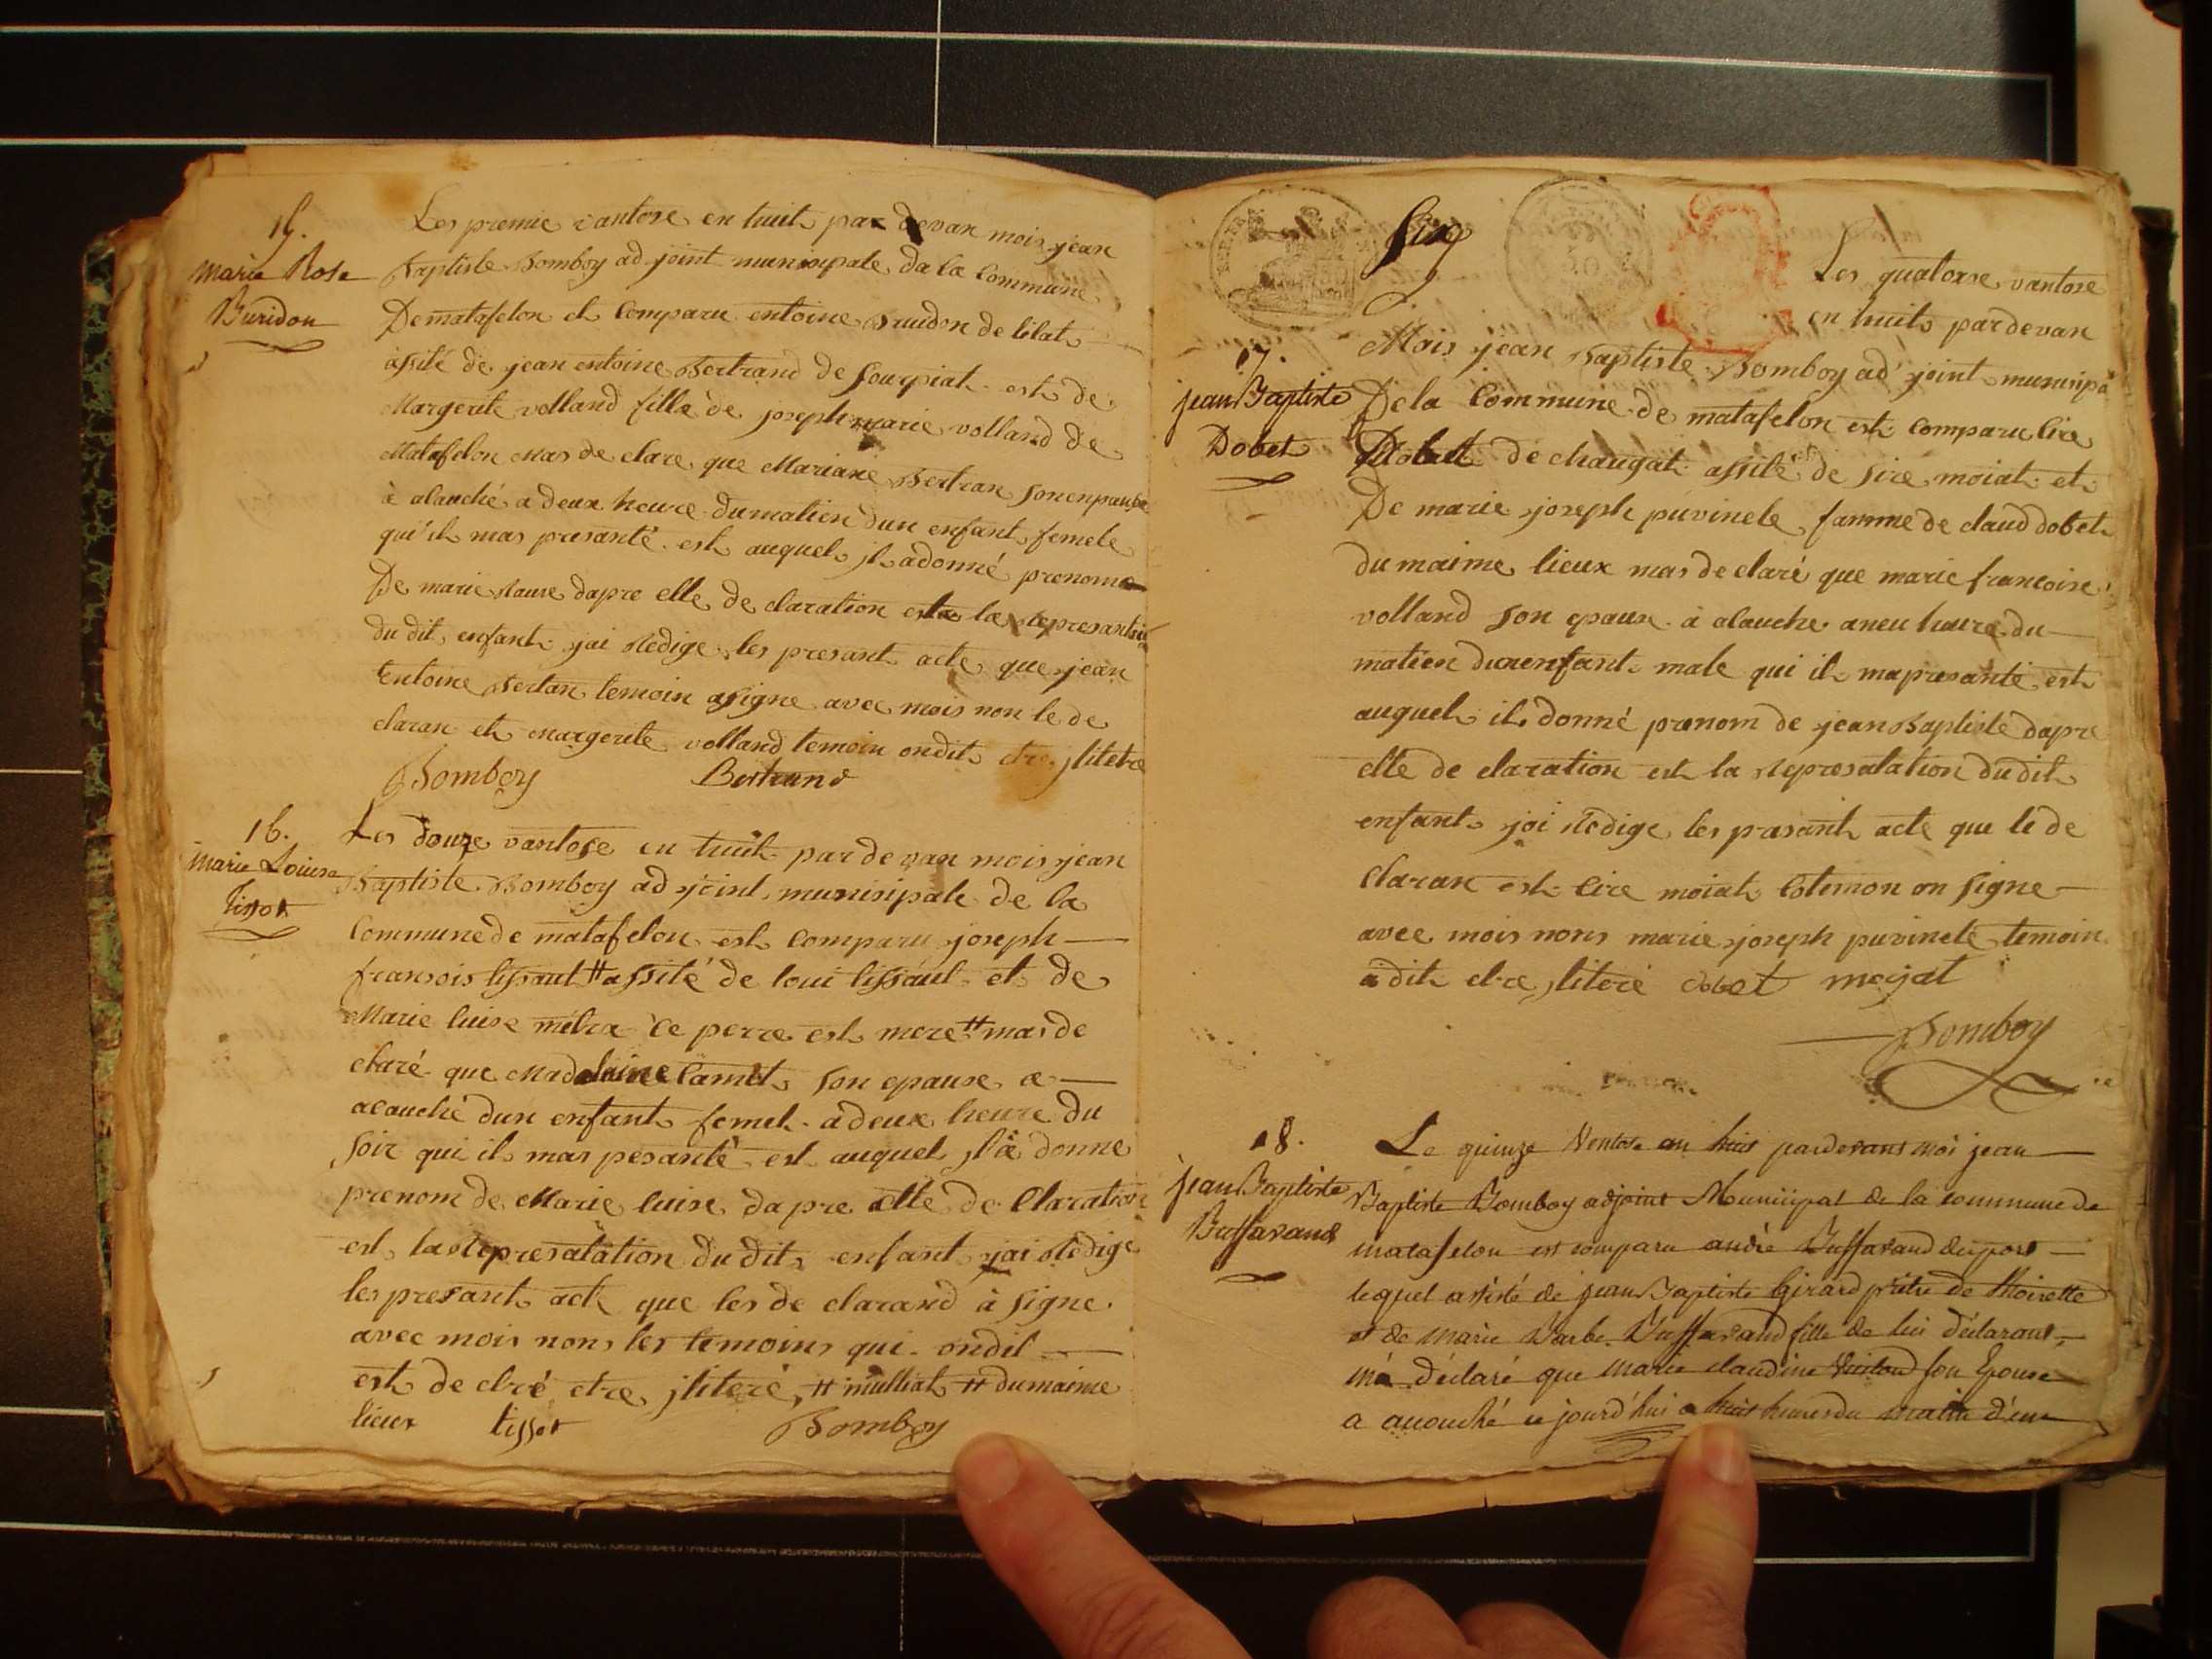 15.
Marie Rose
Buridon
Les premie vantose en huit par devan mois jean
Baptiste Bomboy ad joint munisipale da la Commune
De matafelon et Comparu entoine de
assité de jean entoine Bertrand de est de
Margerite volland fille de joseph marie volland de
Matafelon mas de clare que Mariane Bertran son
à alauché a deux heure du matien dun enfant femele
qui il mas presanté est auquel il adonné prenom
De marie Rause dapre elle de claration est la represantation
du dit enfant jai Redige les presant acte que jean
Entoine Bertan temoin asigne avec mois non le de
claran et Margerite volland temoin ondit etre jlitetre
Bomboy Bertrand
16.
Marie Louise
Tissot
Les douze vantose en huit par de van mois jean
Baptiste Bomboy ad joint munisipale de la
Commune de matafelon est Comparu joseph
fransois tissaut # assité de loui tissaut et de
Marie luise ce perre est mere # mas de
claré que Madelaine son epause a
alauché dun enfant femel a deux heure du
soir qui il mas pesanté est auquel jl a donne
prenom de Marie luise dapre elle de Claration
est la Represatation du dit enfant jai Redige
les presant act que les de clarand à signe
avec mois nons les temoins qui ondit
est de etre jliteré, # mulliat # dumaime
lieux tissot Bomboy
six
Les quatorse vantose
en huit par devan
17.
jean Baptiste
Dobet
Mois jean Baptiste Bomboy ad joint munisipa
De la Commune de matafelon est Comparu
Dobet de chaugat assité de sire moiat et
De marie joseph puvinele famme de claud dobet
du maime lieux mas de claré que marie francoise
volland son epaux à alauche a neu heure du
matien dun enfant male qui il ma presanté est
auquel il donné prenom de jean Baptiste dapre
elle de claration est la Represatation du dit
enfant jai Redige les prasant acte que le de
Claran est moiat on signe
avec mois nons marie joseph puvinelé temoin
a dit etre jliteré dobet mojat
Bomboy
18.
jean Baptiste
Buffavand
Le quinze Ventose an huit pardevant moi jean
Baptiste Bomboy adjoint Municipal de la commune de
matafelon est comparu andré Buffavand du port
lequel assisté de jean Baptiste Girard prêtre de Thoirette
et de Marie Barbe Buffavand fille de lui déclarant
m'a déclaré que Marie claudine son Epouse
a acouché ce jourd'hui a huit heures du matin d'un